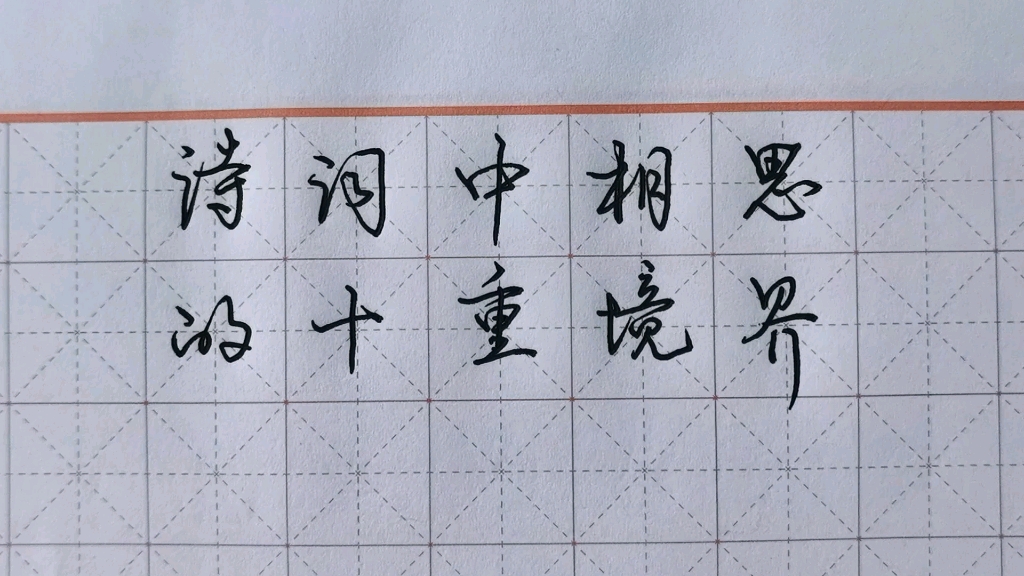 诗词中相思
的十重境界